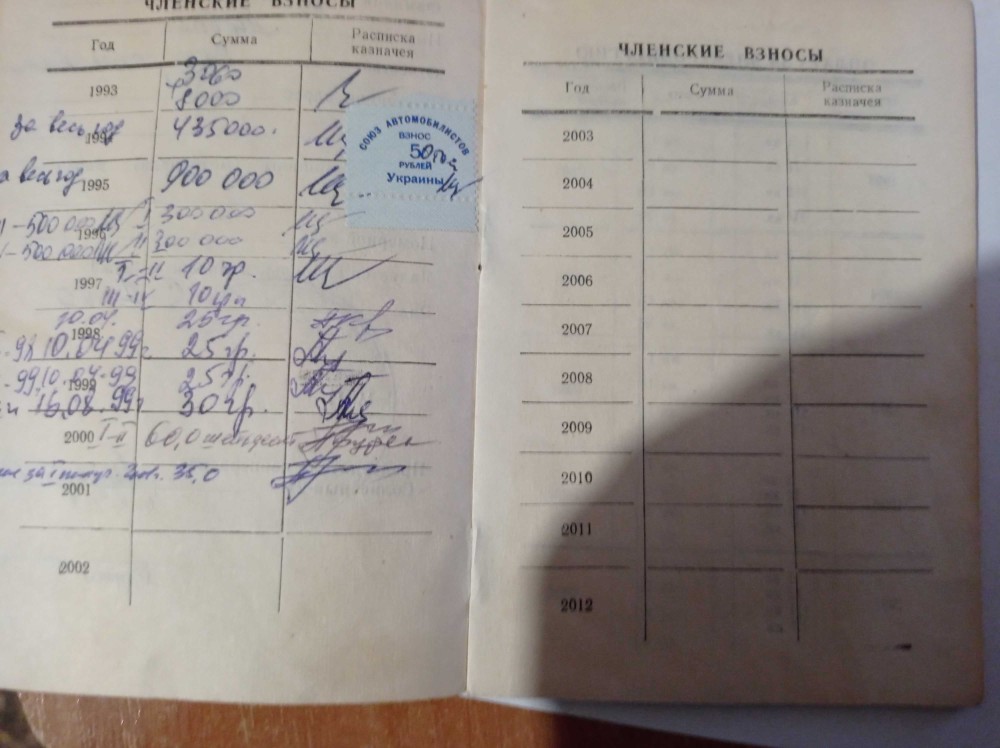 ЧЛЕНСКИЕ ВЗНОСЫ
Год Сумма Расписка казначея
1993 3000
8000
за весь год 1994 435000.
СОЮЗ АВТОМОБИЛИСТОВ
ВЗНОС
50
РУБЛЕЙ
Украины
за весь год 1995 900 000
I 300000
-500 000 1996
-500 000 II 300 000
1997 I-II 10 гр.
III-IV 10 гр
10.04. 1998 25 гр.
98 10.04.99г 25 гр.
99 10.04.99 1999 25 гр.
16.08.99г 30 гр.
2000 I-II 60,0
за I 35,0
2001
2002
ЧЛЕНСКИЕ ВЗНОСЫ
Год Сумма Расписка казначея
2003
2004
2005
2006
2007
2008
2009
2010
2011
2012